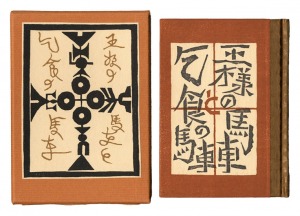 王様の
馬車と
乞食の
馬車
王様の馬車
と
乞食の馬車